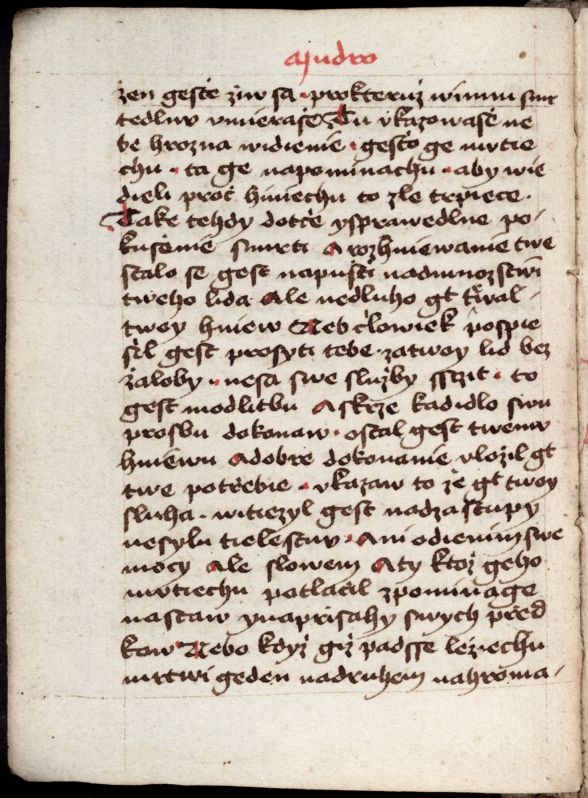 a Mudro
żen gestie żiw sa · prokteruż winnu smr
tedlnu vmierasse Tu vkazowasse ne
be hrozna widienie · gesto ge mrtie
chu · ta ge napominachu · aby wie
dieli proċ hiniechu to zle trpiece ·
Take tehdy dotċe ysprawedlne po-
kussenie smrti A rozhniewanie twe
stalo se gest napussti nadmnozstwi
tweho lida Ale nedluho gt trwal-
twoy hniew Neb ċlowiek pospie
ssil gest prosyti tebe · zatwoy lid bez
żaloby · nesa swe służby sscit · to
gest modlitbu A skrze kadidlo swu
prosbu dokonaw · ostal gest twemu
hniewu Adobre dokonanie vlożil gt
twe potrebie · vkazaw to że gt twoy
sluha · witiezyl gest nadzastupy
nesylu tielestnu · Ani odienim swe
mocy Ale slowem Aty ktoż geho
mrtiechu potlaċil zpominage
nastaw ynaprisahy swych pred
kow Nebo kdyż giż padsse leżiechu
mrtwi geden nadruhem nahroma-